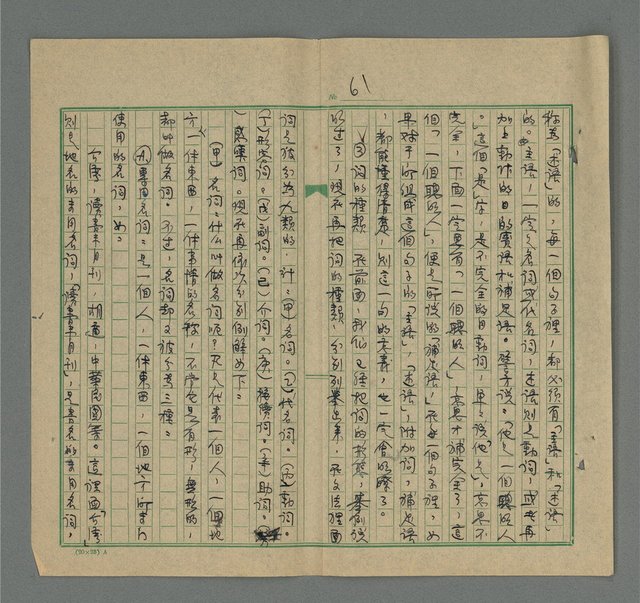 No 61
稱為「述語」的，每一個句子裡，都必須有「主語」和「述語」
的。主語，一定是名詞或代名詞，述語則是動詞，或者再
加上動作的目的賓語和補足語。譬方說：「他是一個聰明人
。」這個「是」字，是不完全的自動詞，單是說他「是」，意思不
完全，下面一定要有「一個聰明人」意思才補完全了，這
個「一個聰明人」，便是所說的「補足語」。在每一個句子裡，如
果對于所組成這個句子的「主語」，「述語」，附加詞，補足語
，都能懂得清楚，則這一句的意義，也一定會明瞭了。
③詞的種類 在前面，我們已經把詞的形態，舉例說
明過了，現在再把詞的種類，分別列舉出來，在文法裡面
詞是被分為九類的，計：(甲)名詞。(乙)代名詞。(丙)動詞。
(丁)形容詞。(戊)副詞。(己)介詞。(庚)接續詞。(辛)助詞。(壬)
感嘆詞。現在再依次分別例解如下：
(甲)名詞：什么叫做名詞呢？凡是代表一個人，一個地
方，一件東西，一件事情的名称，不管他是有形，無形的，
都叫做名詞。不过，名詞却又被分為三種：
A.專用名詞：是一個人，一件東西，一個地方所專門
使用的名詞，如：
台灣，讀書半月刊，胡適，中華民國等。這裡面「台灣」
則是地名的專用名詞，「讀書半月刊」，是書名的專用名詞，
(20×25) A